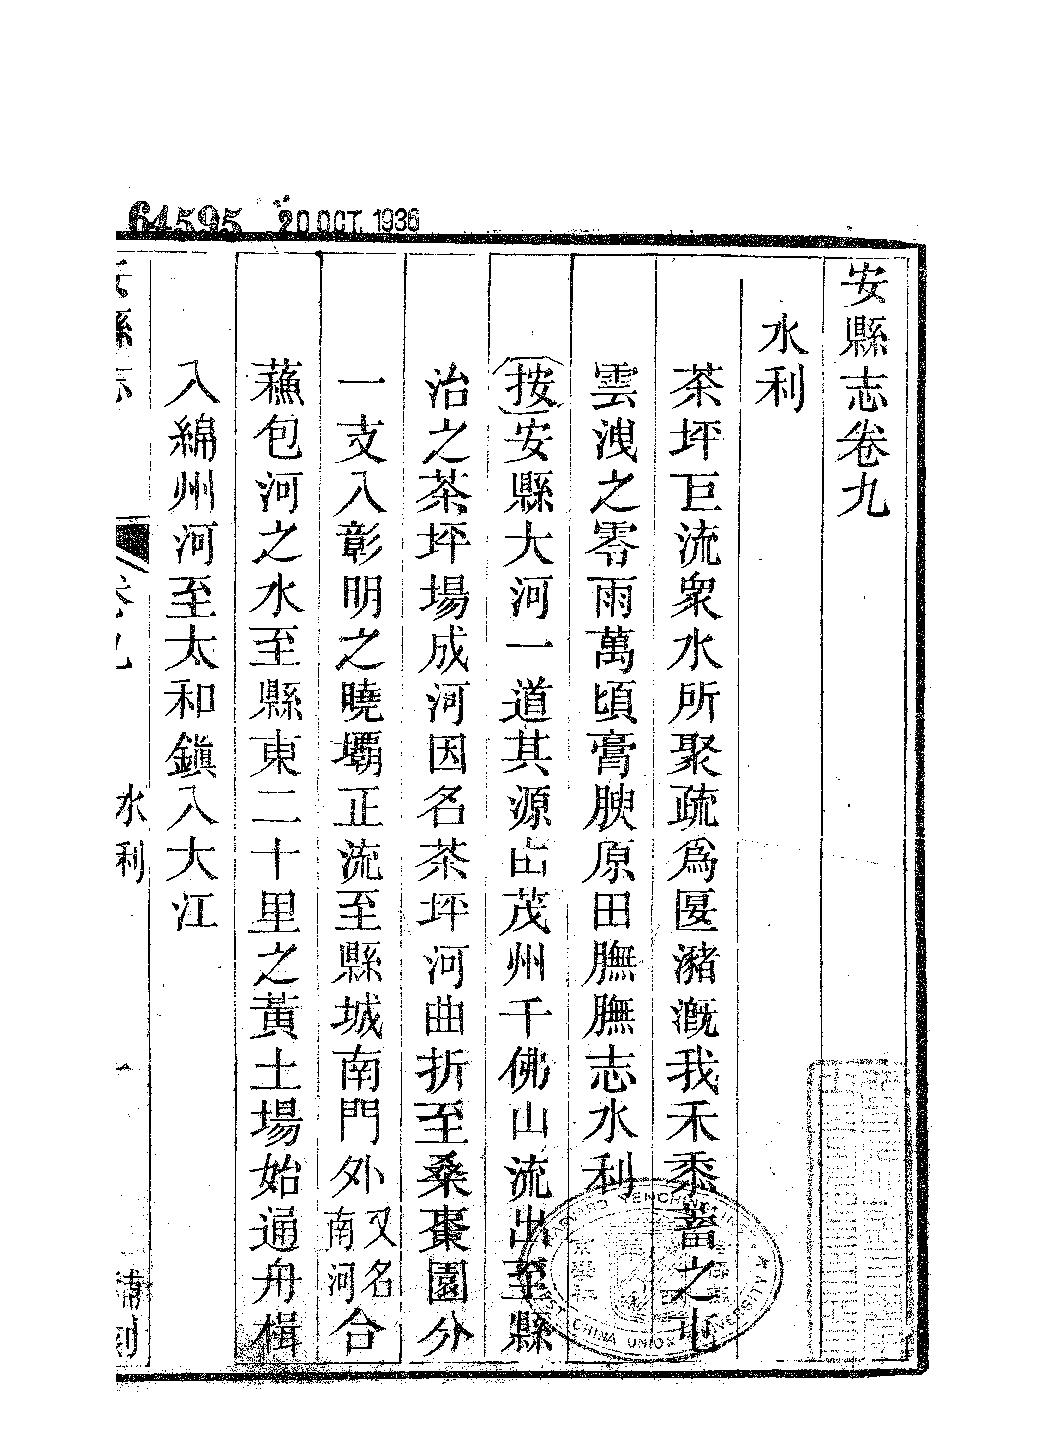 64595 20 OCT. 1936
安縣志卷九
水利
茶坪巨流衆水所聚疏爲匽瀦溉我禾黍蓄之屯
雲洩之零雨萬頃膏腴原田膴膴志水利
按安縣大河一道其源出茂州千佛山流出至縣
治之茶坪場成河因名茶坪河曲折至桑棗園分
一支入彰明之曉壩正流至縣城南門外又名南河合
蘓包河之水至縣東二十里之黃土場始通舟楫
入綿州河至太和鎮入大江
安縣志 卷九 水利 一